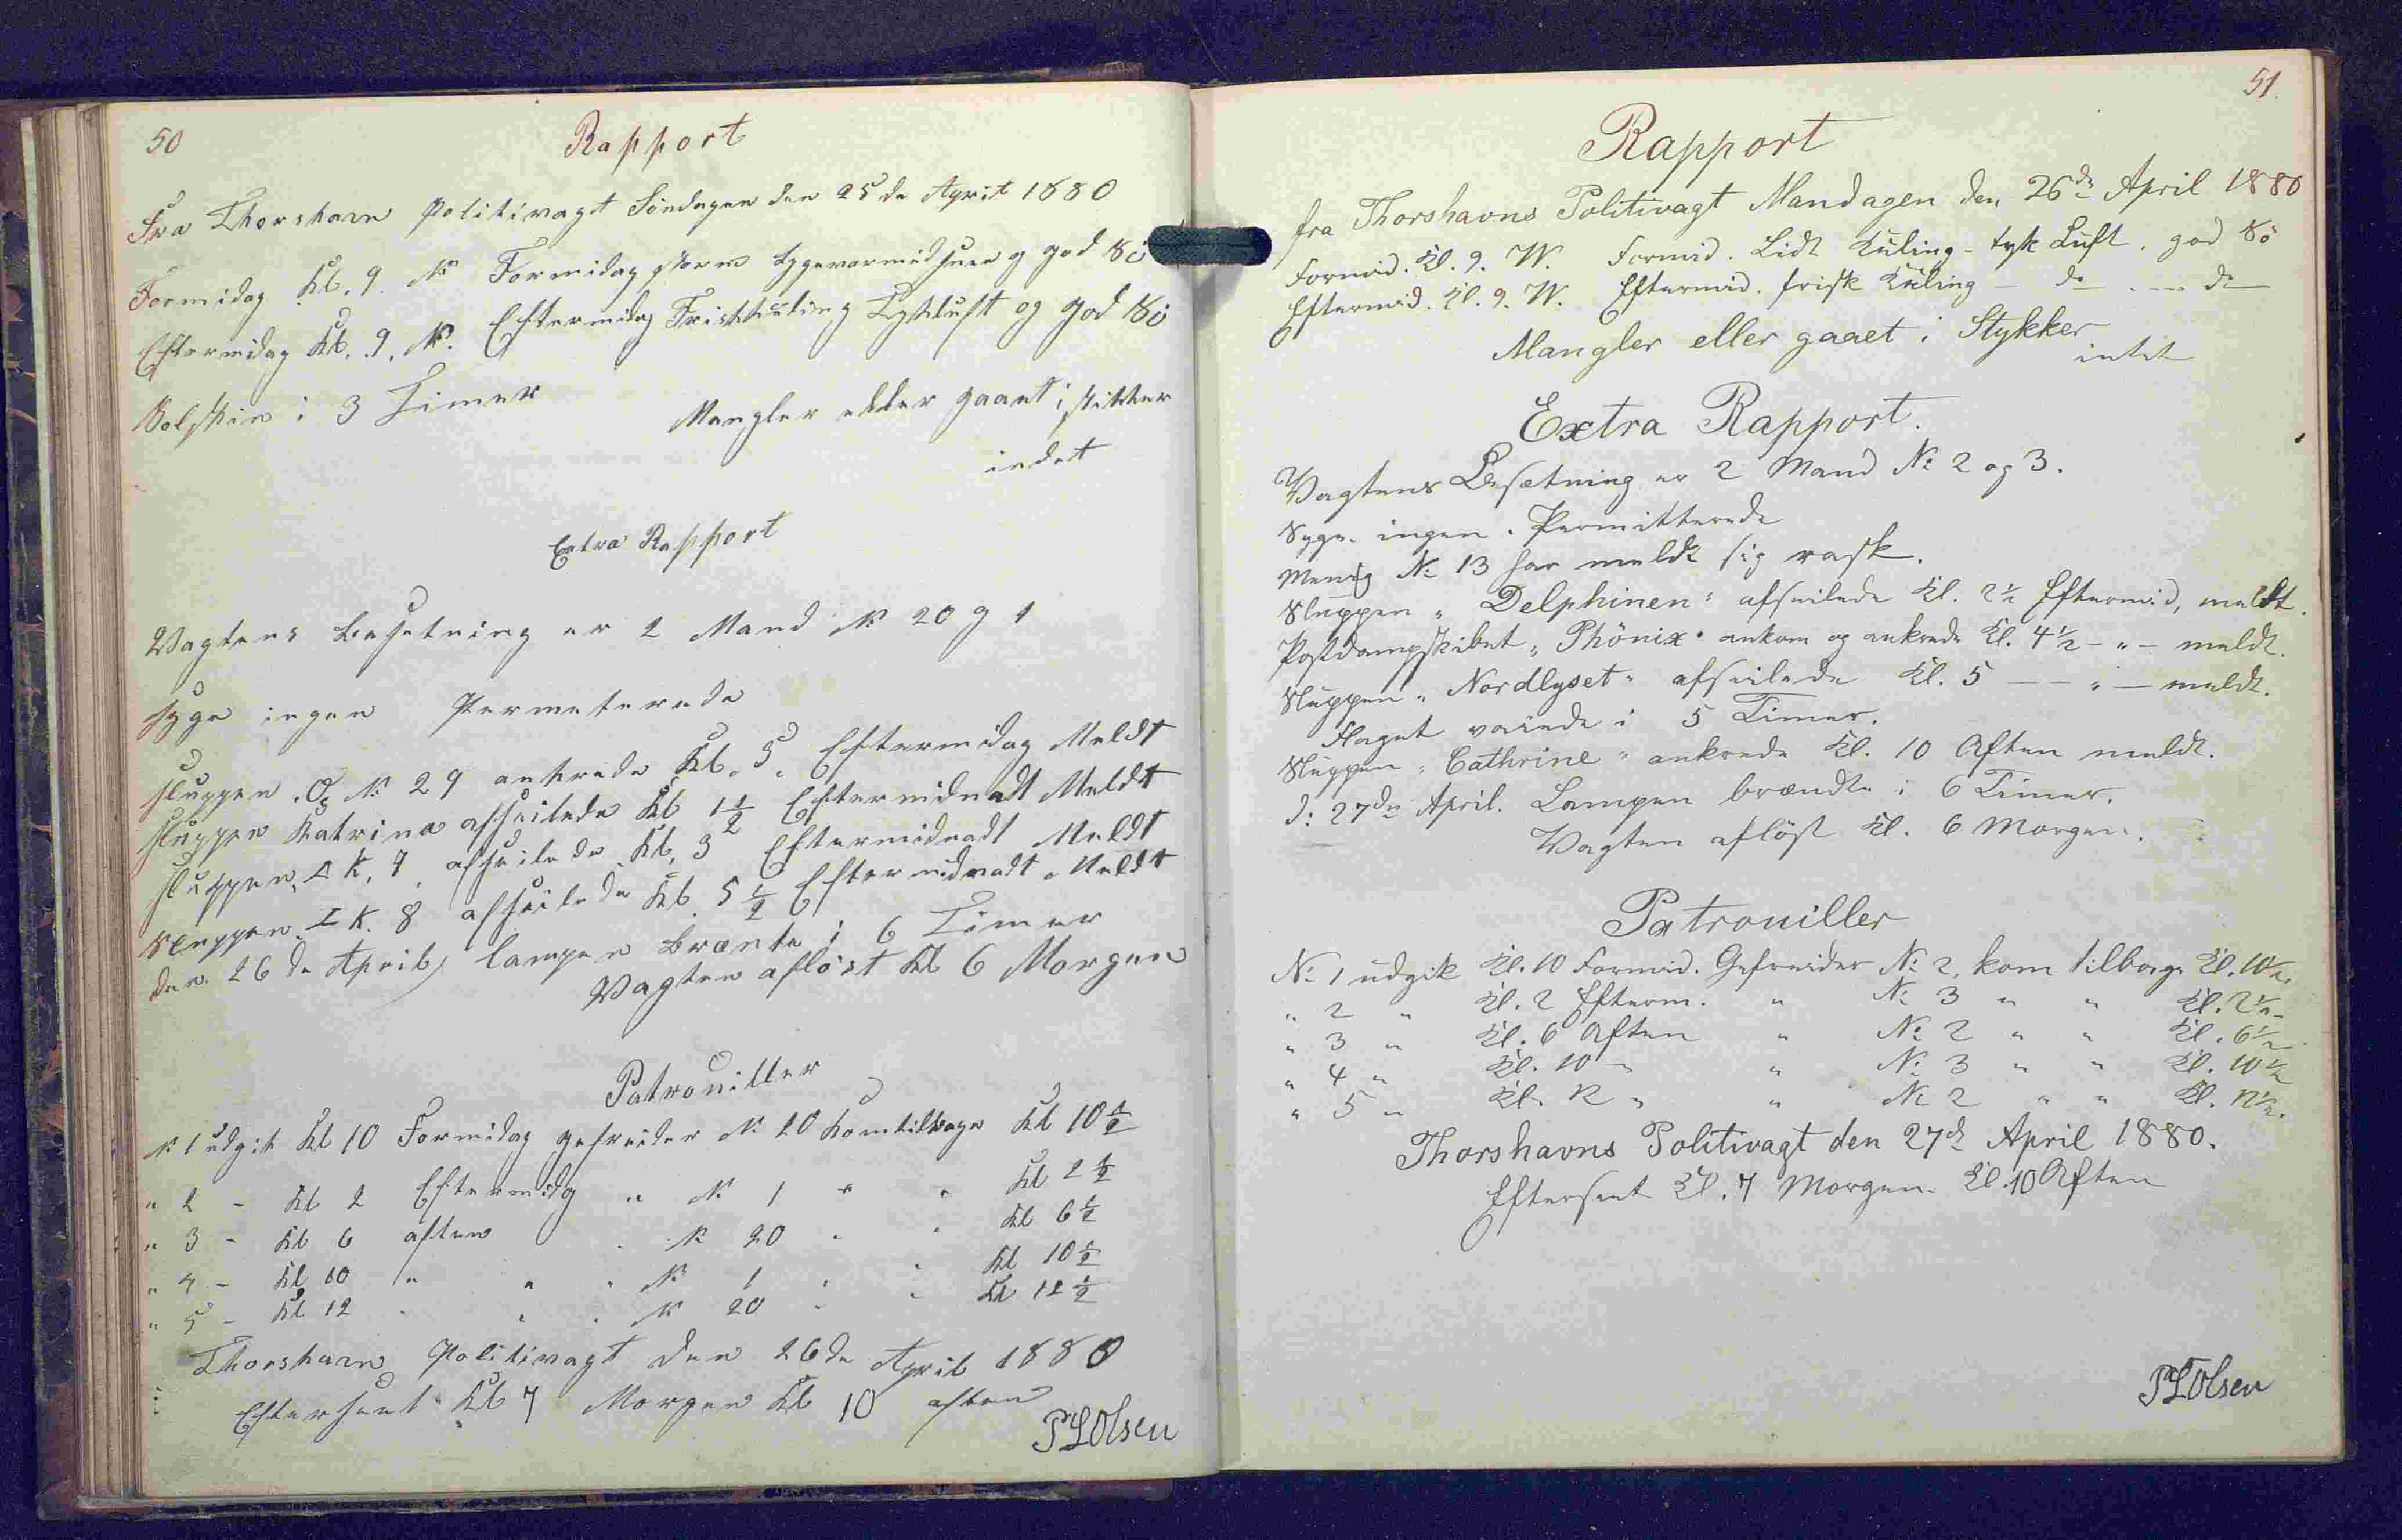 50
Rapport
Fra Thorshavn Politivagt Søndagen den 25de April 1880
Formidag Kl. 9. N Formidag storm og god Sö
Eftermidag Kl. 9. N. Eftermidag Friskkuling Tykluft og god Sö
Solskin i 3 Timer
Mangler eller gaaet i stikker
indet
Extra Rapport
Vagtens besetning er 2 Mand No 20 g 1
syge ingen Permeterede
sluppen No 29 ankrede Kl. 5. Eftermidag Meldt
sluppen Katrina afseilede Kl 1½ Eftermidnadt Meldt
sluppen I K. 7 afseilede Kl. 3 Eftermidnadt Meldt
Sluppen I K. 8 afseilede Kl. 5½ Eftermidnadt. Meldt
den 26de April lampen brænte i 6 Timer
Vagten aflöst Kl 6 Morgen
Patrouiller
No 1 udgik Kl 10 Formidag gefreider No 20 kom tilbage Kl 10½
" 2 - Kl 2 Eftermidg " No 1 " " Kl 2½
" 3 - Kl 6 aften " No 20 " " Kl 6½
" 4 - Kl 10 " " No 1 " " Kl 10½
" 5 - Kl 12 " " No 20 " " Kl 12½
Thorshavn Politivagt den 26de April 1880
Efterseet Kl 7 Morgen Kl 10 aften
PLOlsen
51.
Rapport
fra Thorshavns Politivagt Mandagen den 26de April 1880
Formid. Kl. 9. W. Formid. Lidt Kuling - tyk Luft. god Sö
Eftermid. Kl. 9. W. Eftermid. frisk Kuling - do - do
Mangler eller gaaet i Stykker
intet
Extra Rapport.
Vagtens Besetning er 2 Mand No 2 og 3.
Syge. ingen. Permitterede
Menig No 13 har meldt sig rask.
Sluppen "Delphinen" afseilede Kl. 2½ Eftermid, meldt.
Postdampskibet "Phönix" ankom og ankrede Kl. 4½ - " - meldt.
Sluppen "Nordlyset" afseilede Kl. 5 - " - meldt.
Flaget vaiede i 5 Timer.
Sluppen "Cathrine" ankrede Kl. 10 Aften meldt.
d: 27de April. Lampen brændte i 6 Timer.
Vagten aflöst Kl. 6 Morgen.
Patrouiller
No 1 udgik Kl. 10 Formid. Gefreider No 2, kom tilbage Kl. 10½.
" 2 " Kl. 2 Efterm. " No 3 " " Kl. 2½.
" 3 " Kl. 6 Aften " No 2 " " Kl. 6½.
" 4 " Kl. 10 " " No 3 " " Kl. 10½
" 5 " Kl. 12 " " No 2 " " Kl. 12½.
Thorshavns Politivagt den 27de April 1880.
Efterseet Kl. 7 Morgen Kl. 10 Aften
PLOlsen